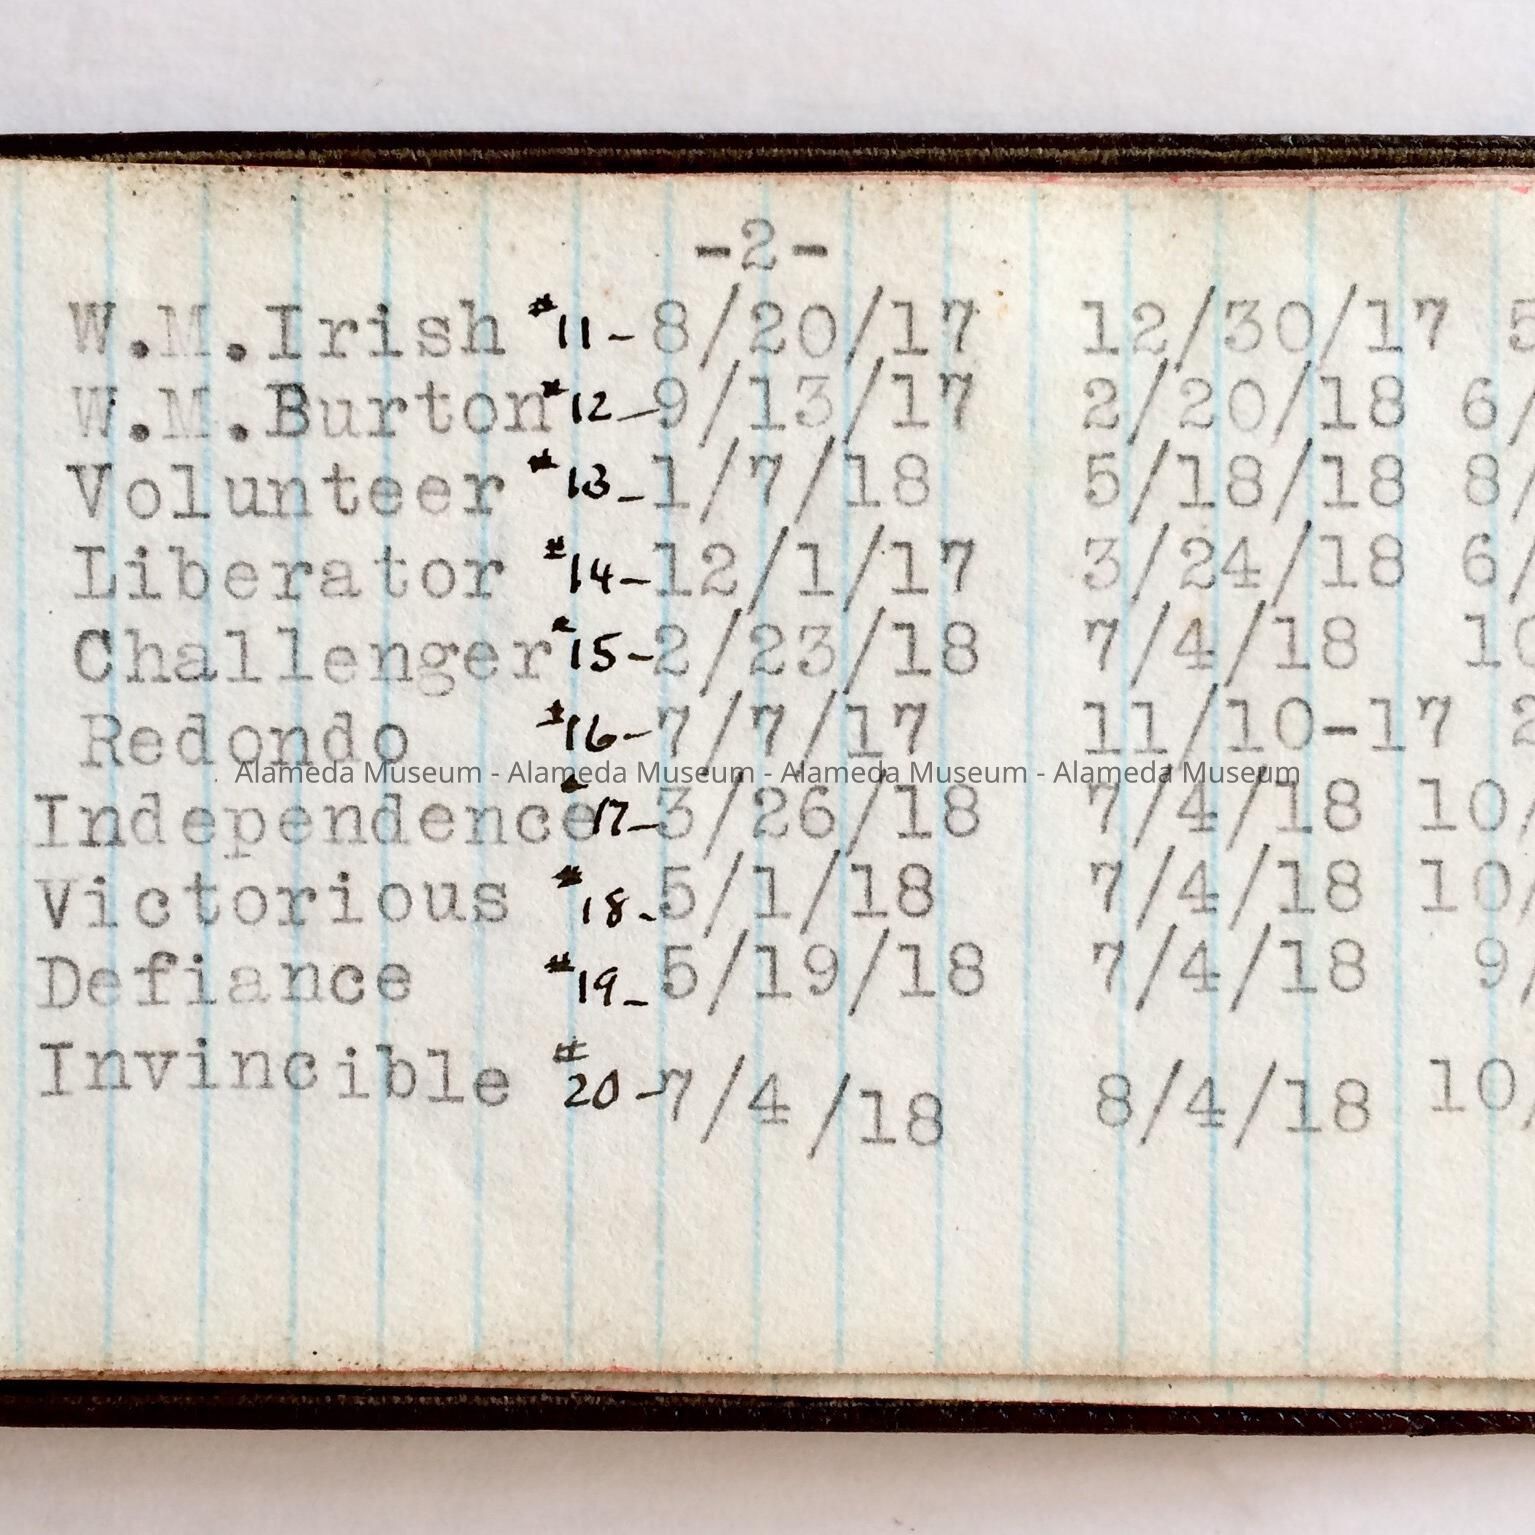 -2-
W.M.Irish #11- 8/20/17 12/30/17 5
W.M.Burton #12- 9/13/17 2/20/18 6/
Volunteer #13- 1/7/18 5/18/18 8/
Liberator #14- 12/1/17 3/24/18 6/
Challenger #15- 2/23/18 7/4/18 10
Redondo #16- 7/7/17 11/10-17 2
Alameda Museum - Alameda Museum - Alameda Museum - Alameda Museum
Independence #17- 3/26/18 7/4/18 10/
Victorious #18- 5/1/18 7/4/18 10/
Defiance #19- 5/19/18 7/4/18 9/
Invincible #20- 7/4/18 8/4/18 10/